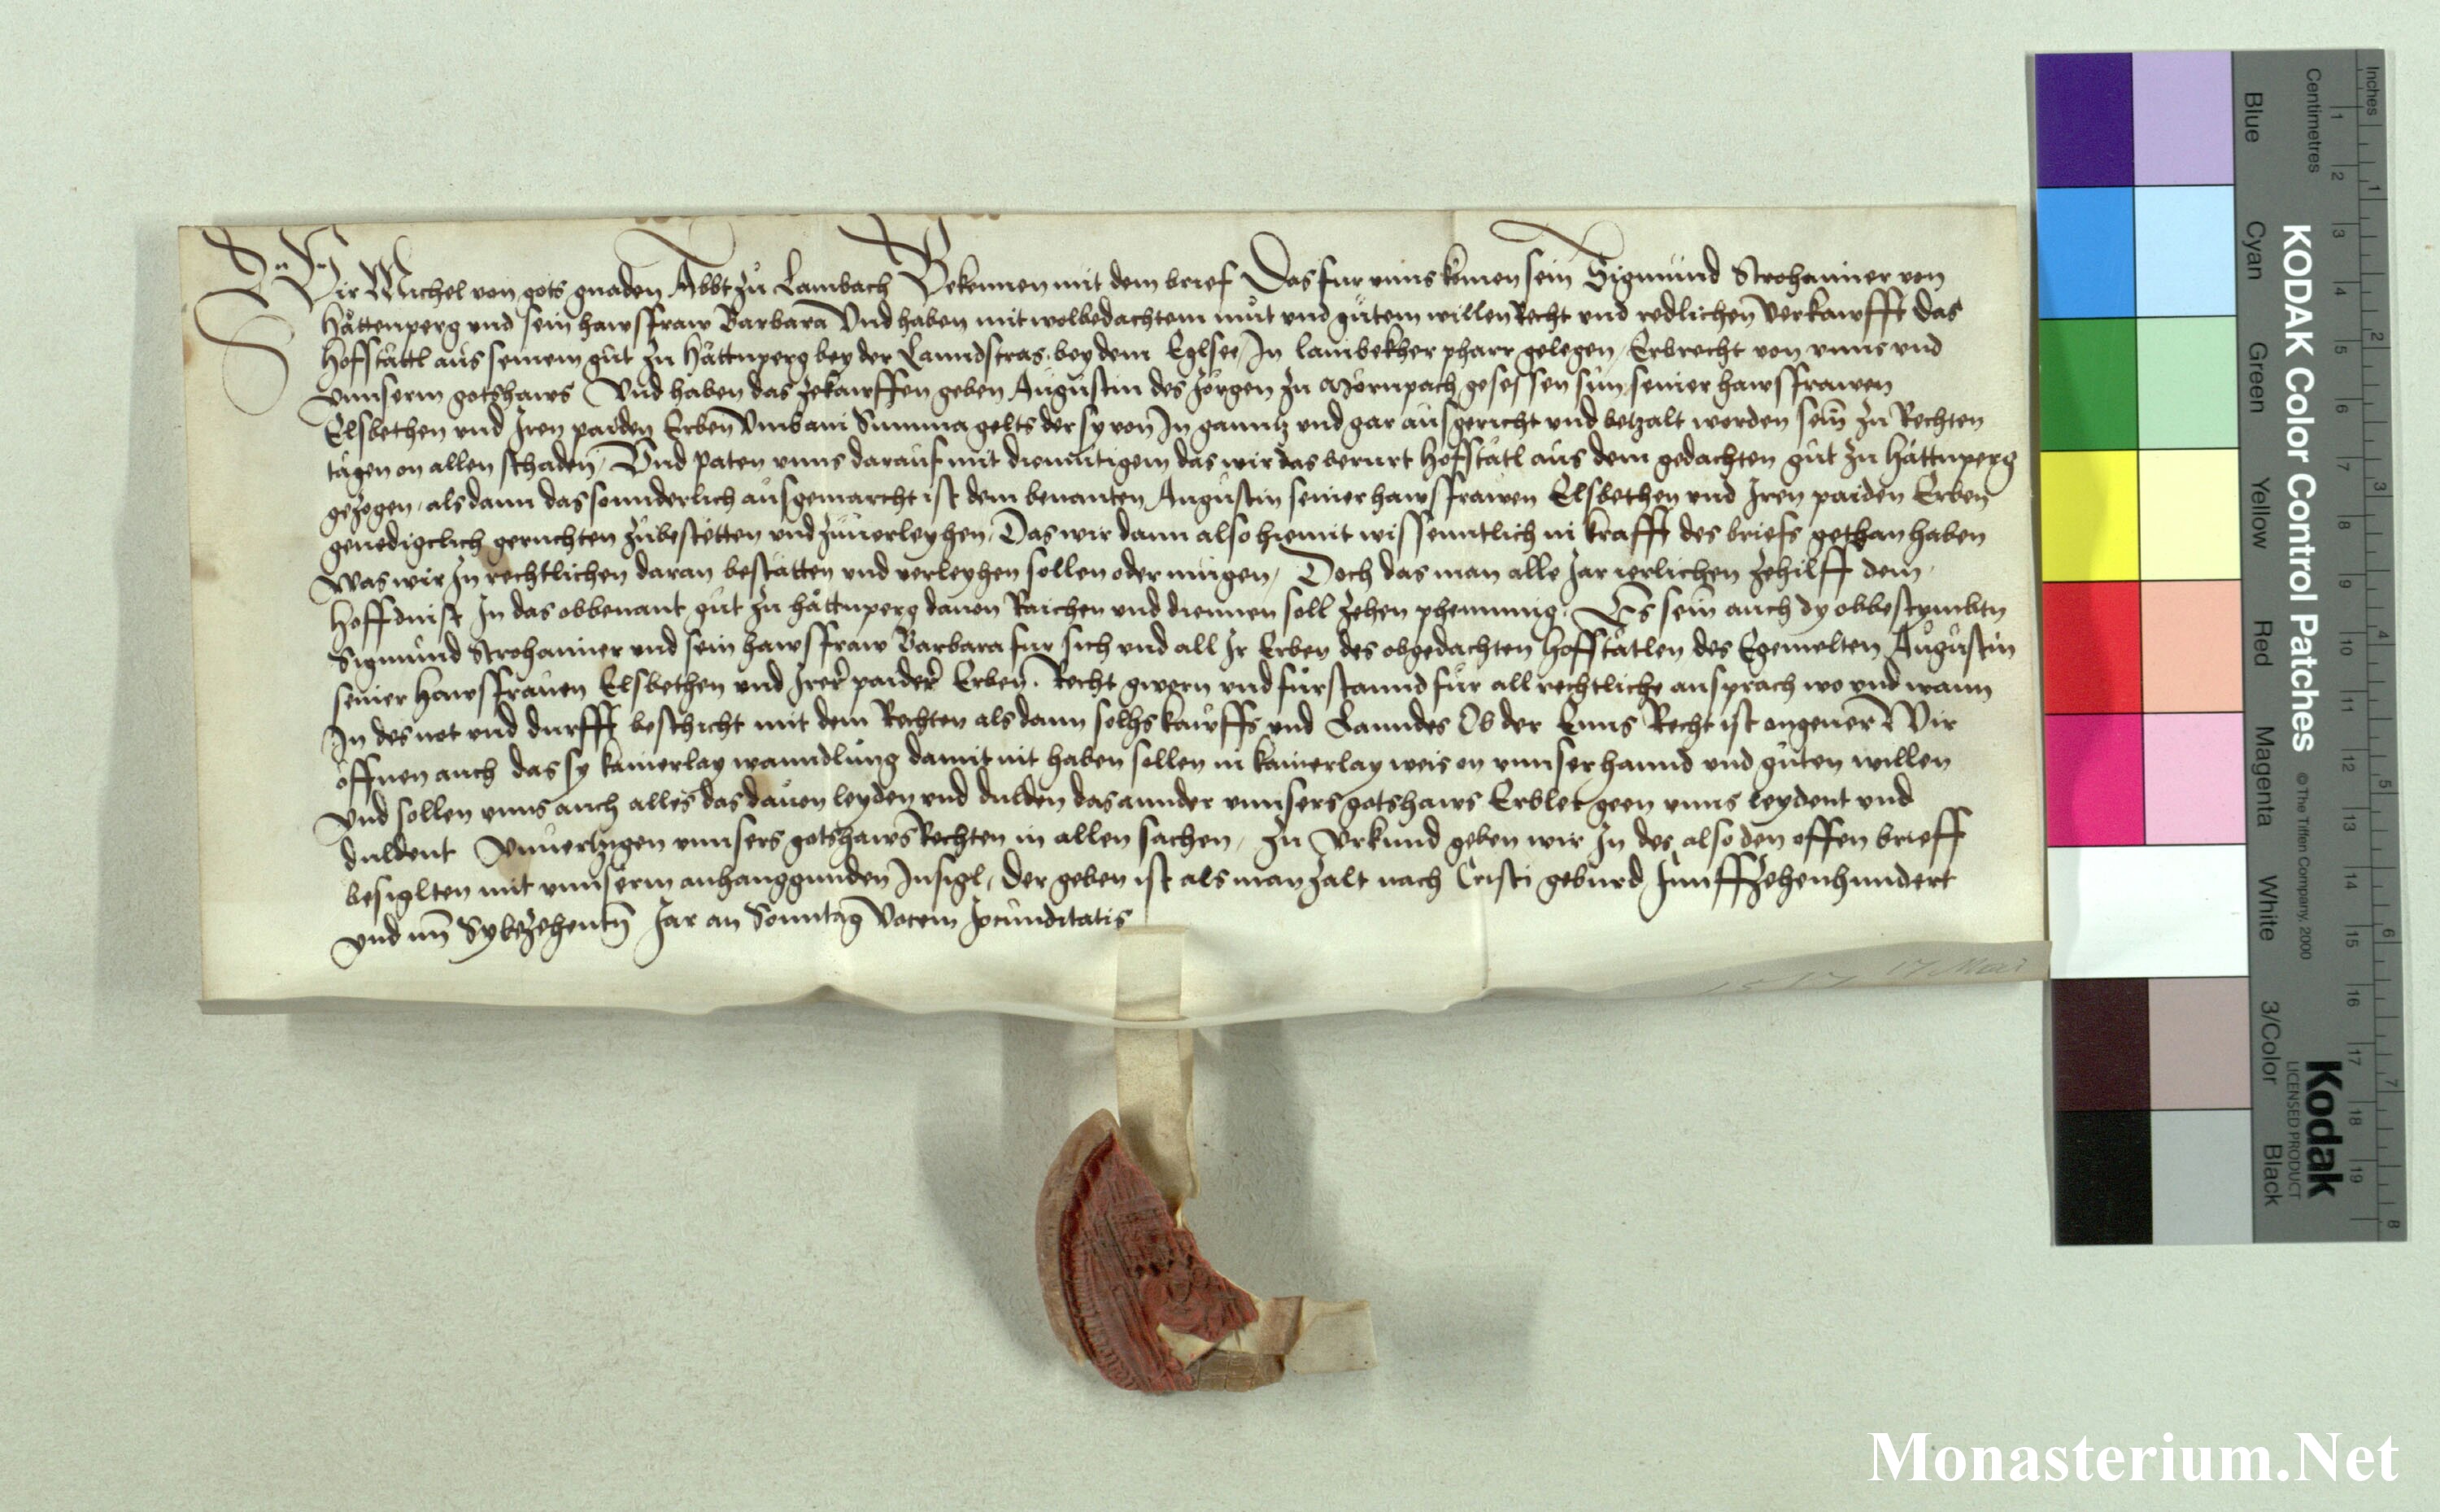 Wir Michel von gots gnaden Abbt zů Lambach Bekennen mit dem brief Das fur vnns komen sein Sigmund Strohamer von
Hättenperg vnd sein hawsfraw Barbara Vnd haben mit wolbedachtem můt vnd gůtem willen Recht vnd redlichen Verkawfft das
Hofstättl aus seinem gůt zu Hättnperg bey der Lanndstras bey dem Eglsee In lambekher pharr gelegen Erbrecht von vnns vnd
Vnnserm gotshaws Vnd haben das zekawffen geben Augustin des Jörgen zu gesessen sun seiner hawsfrawen
Elsbethen vnd Iren paiden Erben Vmb ain Summa gelts der sy von In ganntz vnd gar ausgericht vnd betzalt worden sein zu Rechten
tagen on allen schaden Vnd paten vnns darauf mit diemutigem das wir das berurt Hofstätl aus dem gedachten gůt zu Hättnperg
gezogen als dann das sonnderlich ausgemarcht ist dem benanten Augustin seiner hawsfrawen Elsbethen vnd Iren paiden Erben
genedigclich geruchten zubestetten vnd zuuerleyhen Das wir dann also hiemit wissenntlich in krafft des briefs gethan haben
Was wir In rechtlichen daran bestätten vnd verleyhen sollen oder mugen Doch das man alle Jar ierlichen zehilff dem
Hoffdnist In das obbenant gůt zu hättnperg dauon Raichen vnd diennen soll zehen phenning Es sein auch dy obbestymbtn
Sigmund Strohamer vnd sein hawsfraw Barbara fur sich vnd all Ir Erben des obgedachten Hofstätlen des Egemelten Augustin
seiner Hawsfrauen Elsbethen vnd Irer paider Erben Recht gwern vnd fürstannd für all rechtliche ansprach wo vnd wann
In des not vnd durfft beschicht mit dem Rechten als dann solhs kawffs vnd Lanndes Ob der Enns Recht ist ongeuer Wir
öffnen auch das sy kainerlay wanndlung damit nit haben sollen in kainerlay weis on vnnser hannd vnd gůten willen
Vnd sollen vnns auch alles das dauon leyden vnd dulden das annder vnnsers gotshaws Erblet geen vnns leydent vnd
duldent Vnuertzigen vnnsers gotshaws Rechten in allen sachen Zu Vrkund geben wir In des also den offen brieff
besiglten mit vnnserm anhanggunden Insigl Der geben ist als man zalt nach Cristi geburd funffzehenhundert
vnd im Sybezehentn Jar an Sonntag Vocem Jocunditatis
1517 17 Mai
KODAK Color Control Patches
© The Tiffen Company, 2000
Kodak
LICENSED PRODUCT
Inches
Centimetres
Blue
Cyan
Green
Yellow
Red
Magenta
White
3/Color
Black
1 2 3 4 5 6 7 8 9 10 11 12 13 14 15 16 17 18 19
1 2 3 4 5 6 7 8
Monasterium.Net